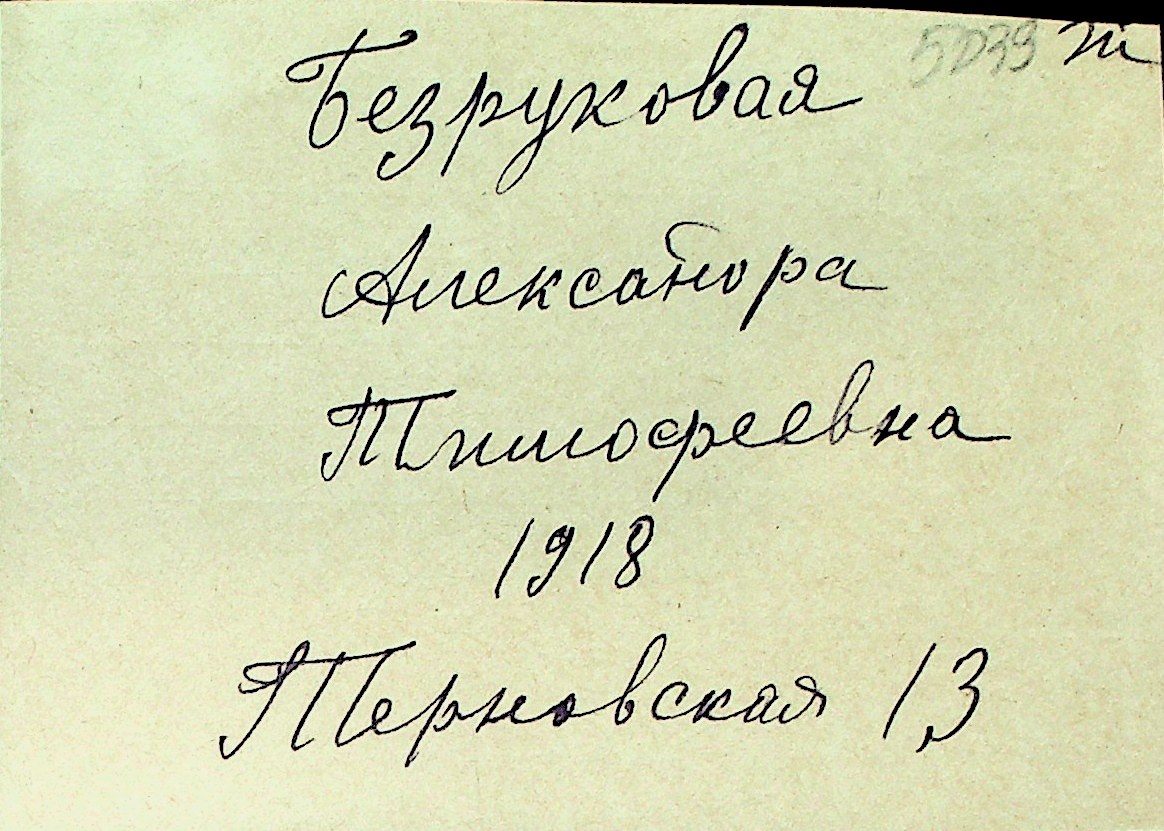 5039 т
Безруковая
Александра
Тимофеевна
1918
Терновская 13